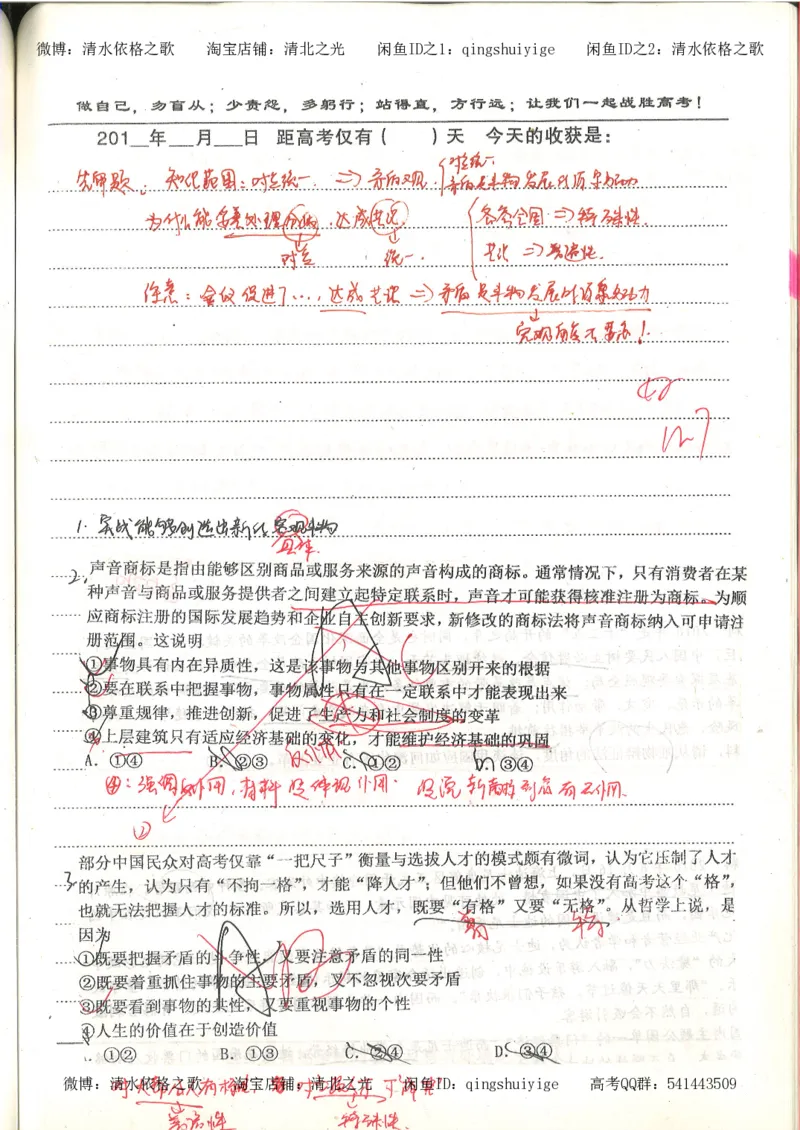 微博：清水依格之歌 淘宝店铺：清北之光 闲鱼ID之1：qingshuiyige 闲鱼ID之2：清水依格之歌
做自己，勿盲从；少责怨，多躬行；站得直，方行远；让我们一起战胜高考！
201__年___月___日 距高考仅有（ ）天 今天的收获是：
知识范围：对立统一 => 矛盾观
对立统一
矛盾是事物发展的源泉动力
为什么能 处理分歧，达成共识
各国 => 特殊性
对立 统一．
共识 => 普遍性．
注意：会议促进了...，达成共识 => 矛盾是事物发展的源泉动力
1. 实践能够创造出新的客观事物
具体
2. 声音商标是指由能够区别商品或服务来源的声音构成的商标。通常情况下，只有消费者在某
种声音与商品或服务提供者之间建立起特定联系时，声音才可能获得核准注册为商标。为顺
应商标注册的国际发展趋势和企业自主创新要求，新修改的商标法将声音商标纳入可申请注
册范围。这说明
①事物具有内在异质性，这是该事物与其他事物区别开来的根据
②要在联系中把握事物，事物属性只有在一定联系中才能表现出来
③尊重规律，推进创新，促进了生产力和社会制度的变革
④上层建筑只有适应经济基础的变化，才能维护经济基础的巩固
A．①④ B．②③ C．①② ③④
反作用
④：强调反作用，材料 体现 作用．
②
3 部分中国民众对高考仅靠“一把尺子”衡量与选拔人才的模式颇有微词，认为它压制了人才
的产生，认为只有“不拘一格”，才能“降人才”；但他们不曾想，如果没有高考这个“格”，
也就无法把握人才的标准。所以，选用人才，既要“有格”又要“无格”。从哲学上说，是
因为
①既要把握矛盾的斗争性，又要注意矛盾的同一性
②既要着重抓住事物的主要矛盾，又不忽视次要矛盾
③既要看到事物的共性，又要重视事物的个性
④人生的价值在于创造价值
①② B．①③ C．②④ D．③④
微博：清水依格之歌 淘宝店铺：清北之光 闲鱼ID：qingshuiyige 高考QQ群：541443509
普遍性 特殊性．